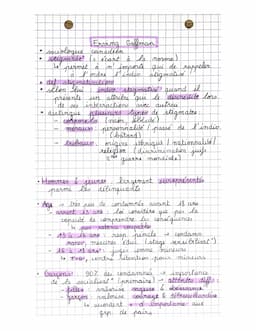 Erving Goffman
• sociologue canadien
• stigmate (= écart à la norme)
↳ permet à n' importe qui de rappeler
à l' ordre l' indiv stigmatisé
• def stigmatisation
• selon lui : indiv stigmatisé quand il
présente un attribu qui le discrédite lors
de ses interactions avec autrui
• distingue plusieurs types de stigmates :
- corporels (main, obésité)
- moraux : personnalité / passé de l'indiv
(bâtard)
- tribaux : origine ethnique / nationalité /
religion (discrimination juifs
2nde guerre mondiale)
• Hommes & jeunes : largement surreprésentés
parmi les délinquants
• Age → très peu de condamnés avant 13 ans
- avant 13 ans : loi considère que pas la
capacité de comprendre les conséquences
↳ pas rentrés
- 13 à 16 ans : resp pénale → condam
mesures éduc (stage
- 16 à 18 ans : jugé comme mineurs
↳ mais, centre détention pour mineurs
• Garçons : 90% des condamnés → importance
de la socialisat° (primaire) → attentes diff
- filles : valorise
- garçons : valorise courage &
↳ importance aux
grp. de pairs